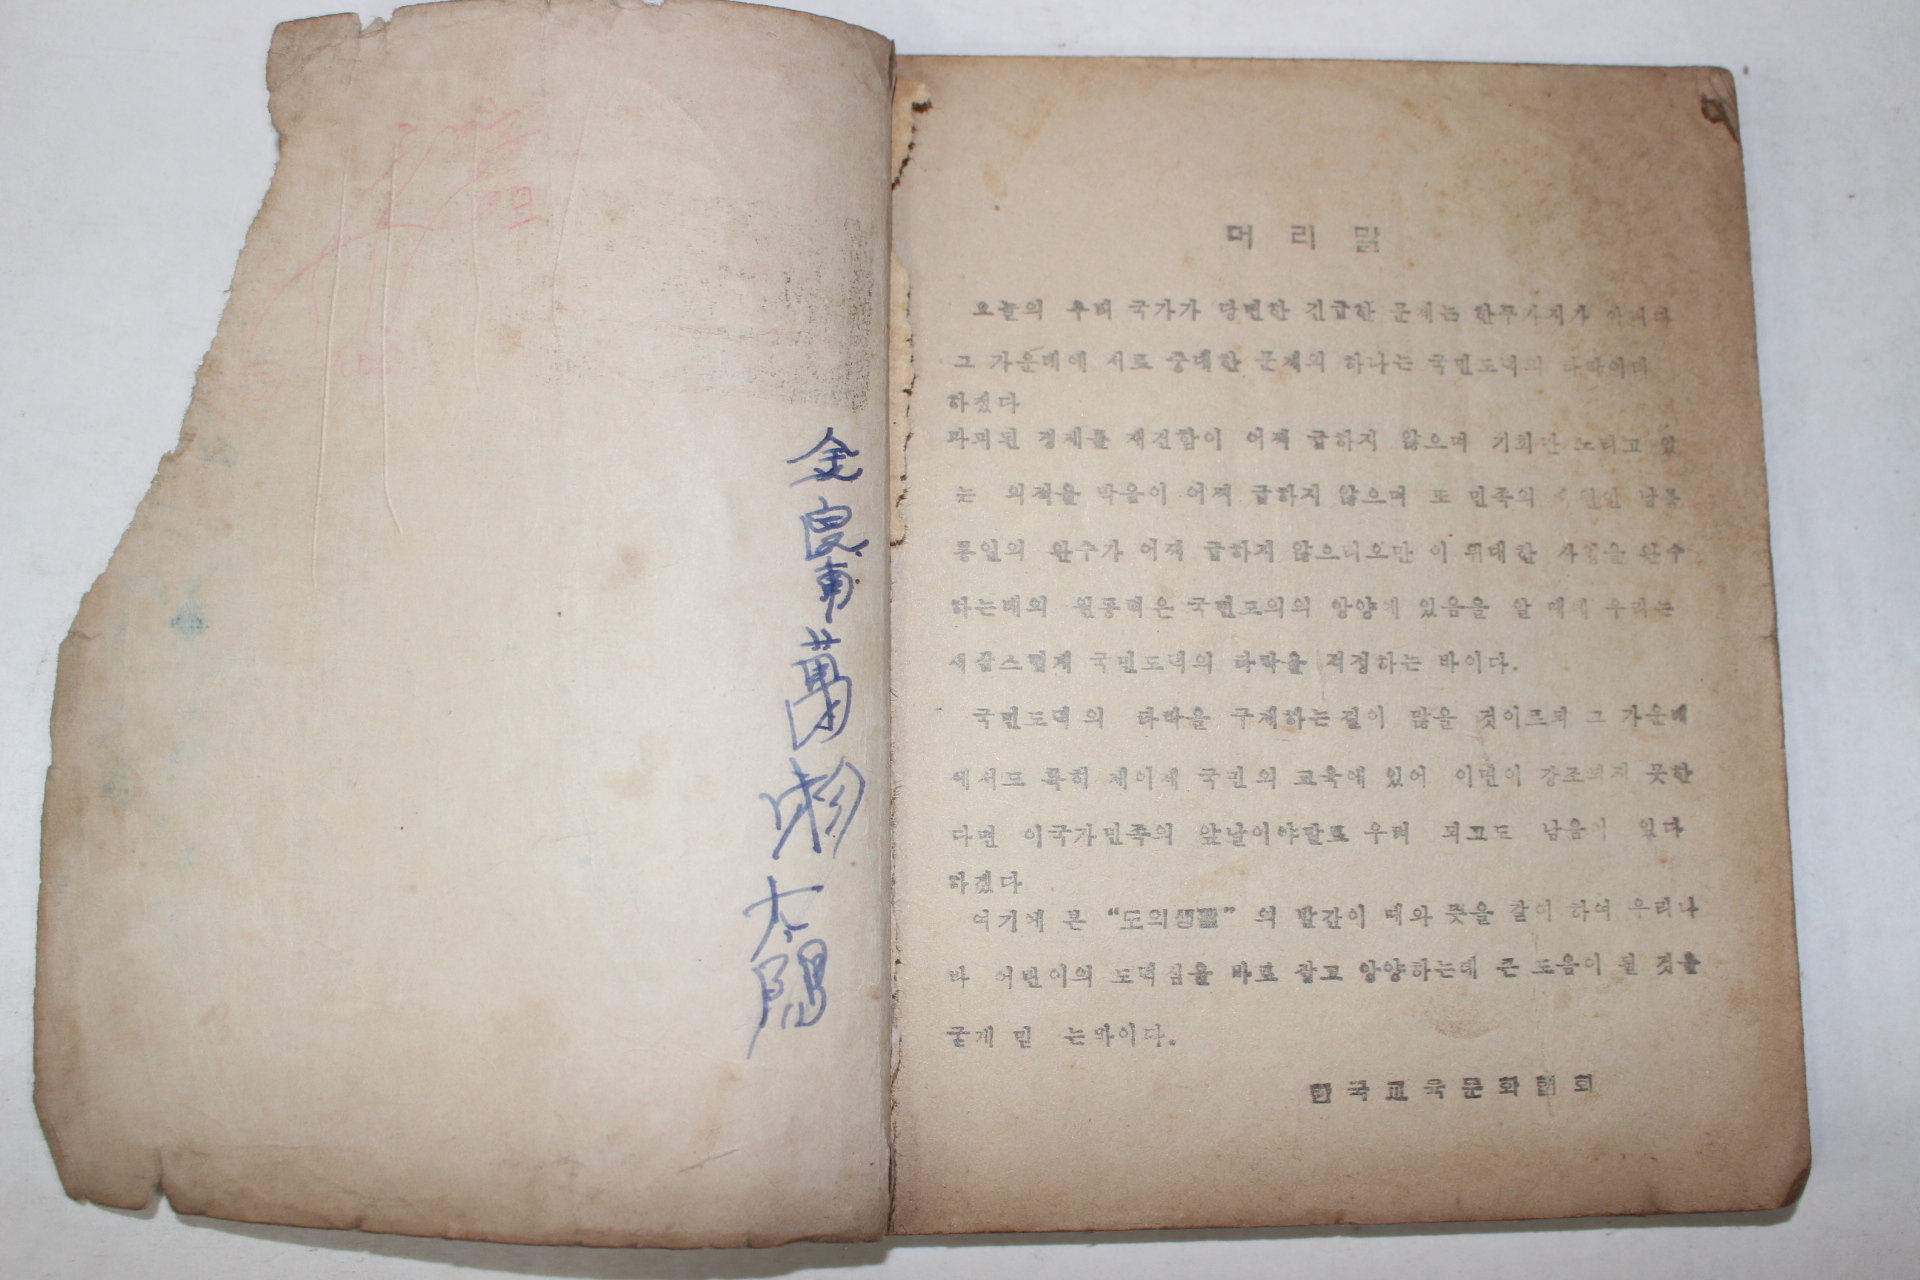 머리말
오늘의 우리 국가가 당면한 긴급한 문제는 한두가지가 아니다
그 가운데에 서로 중대한 문제의 하나는 국민도덕의 타락이라
하겠다
파괴된 경제를 재건함이 어찌 급하지 않으며 기회만 노리고 있
는 의적을 막음이 어찌 급하지 않으며 또 민족의 남북
통일의 완수가 어찌 급하지 않으리오만 이 위대한 사업을 완수
하는데의 원동력은 국민도의의 앙양에 있음을 알 때에 우리는
새삼스럽게 국민도덕의 타락을 걱정하는 바이다.
국민도덕의 타락을 구제하는길이 많을 것이로되 그 가운데
에서도 특히 제이세 국민의 교육에 있어 이면이 강조되지 못한
다면 이국가민족의 앞날이야말로 우려 되고도 남음이 있다
하겠다
여기에 본 “도의생활” 의 발간이 때와 뜻을 같이 하여 우리나
바 어린이의 도덕심을 바로 잡고 앙양하는데 큰 도움이 될 것을
굳게 믿 는바이다.
한국교육문화협회
金 良 東 萬
太 陽